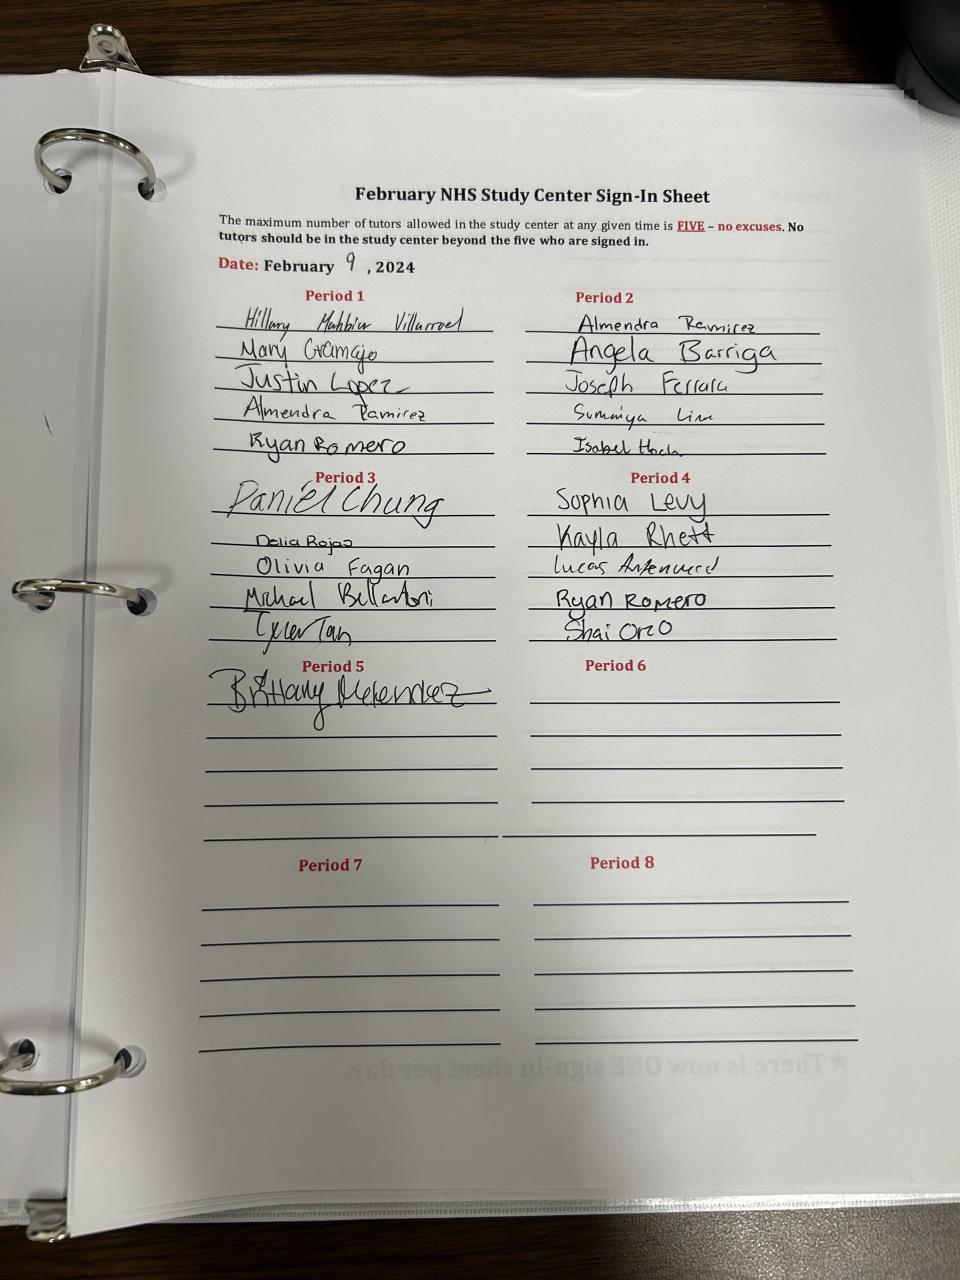 February NHS Study Center Sign-In Sheet
The maximum number of tutors allowed in the study center at any given time is FIVE – no excuses. No
tutors should be in the study center beyond the five who are signed in.
Date: February 9, 2024
Period 1
Hillary Mahbir Villarroel
Mary Gramajo
Justin Lopez
Almendra Ramirez
Ryan Romero
Period 2
Almendra Ramirez
Angela Barriga
Joseph Ferrara
Sumaiya
Isabel
Period 3
Daniel Chung
Delia Rojas
Olivia Fagan
Michael Bellantoni
Tyler Tan
Period 4
Sophia Levy
Kayla Rhett
Lucas
Ryan Romero
Shai Orzo
Period 5
Brittany Melendez
Period 6
Period 7
Period 8
★There is now ONE sign-in sheet per day.